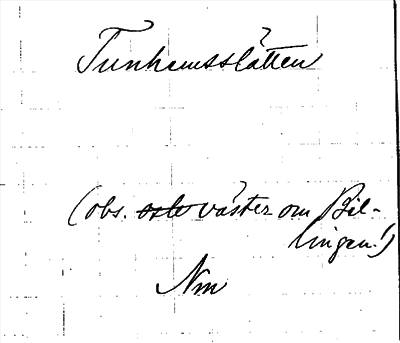 Tunhemsslätten
(obs. väster om Bil-
lingen!)
Nm